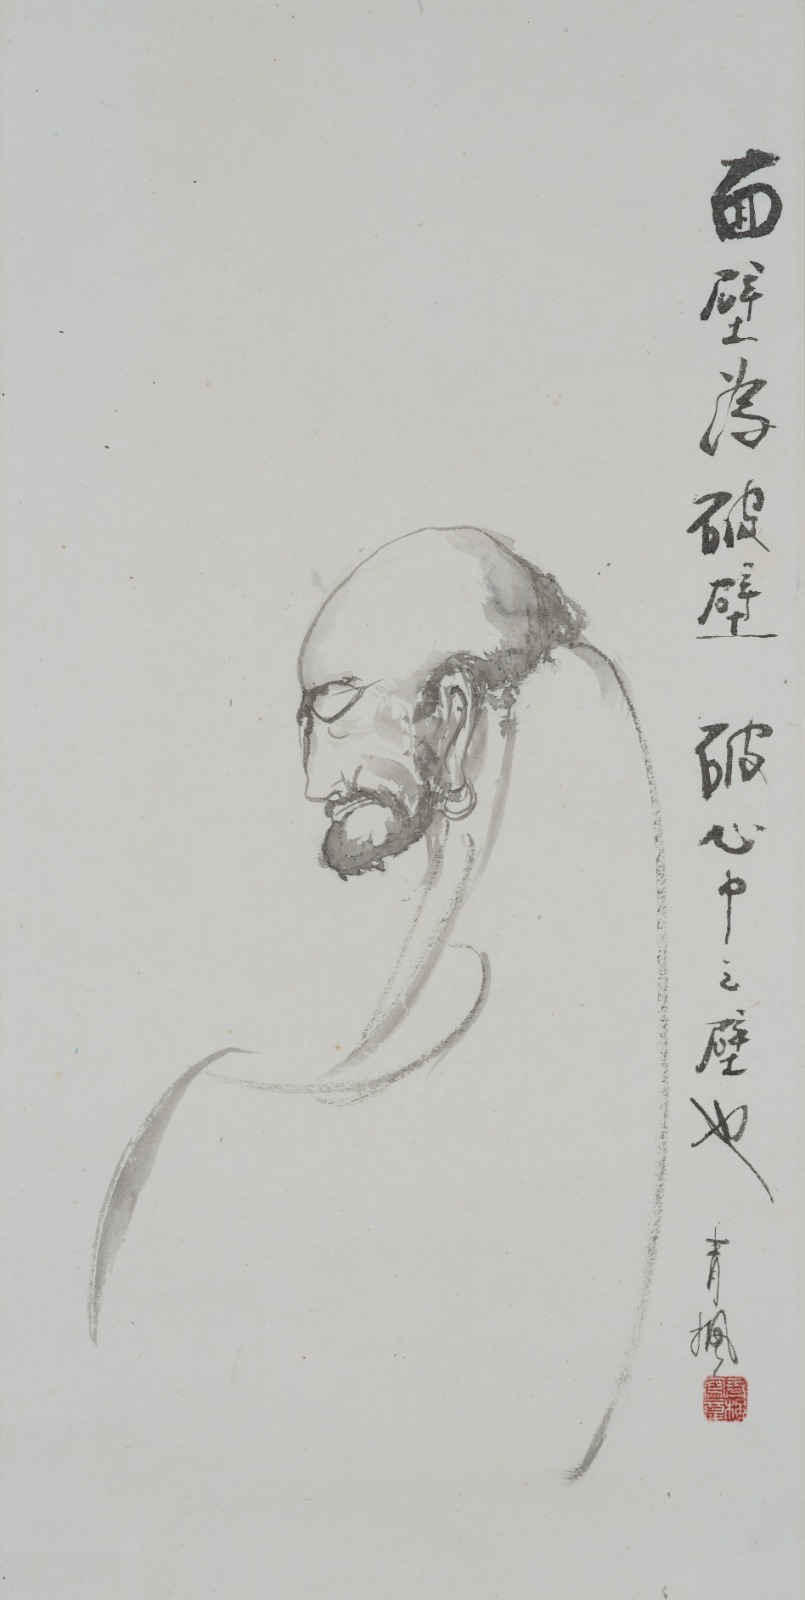 面壁为破壁 破心中之壁也
青楓